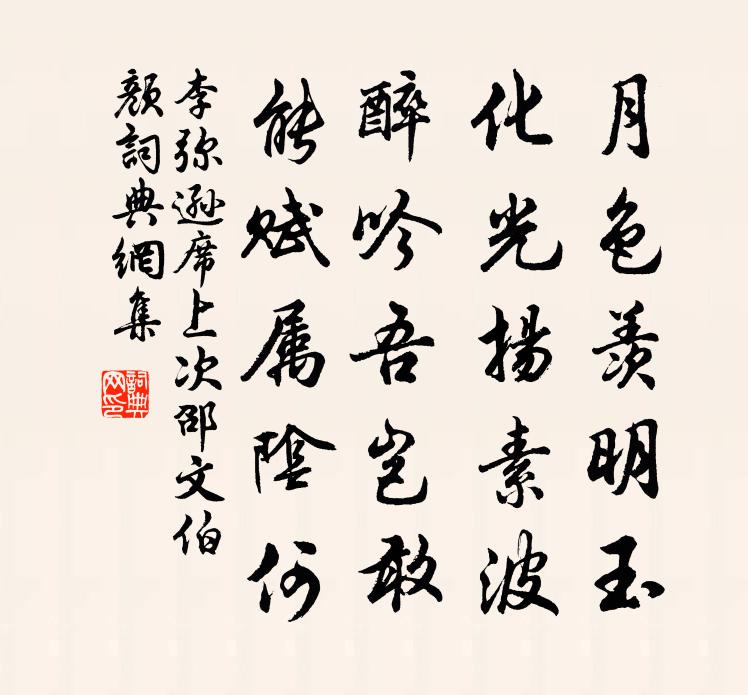 月色羡明玉
化光揚素波
醉吟吾豈敢
能赋属陰何
李弥遜席上次邵文伯
顏詞典網集
詞典網印